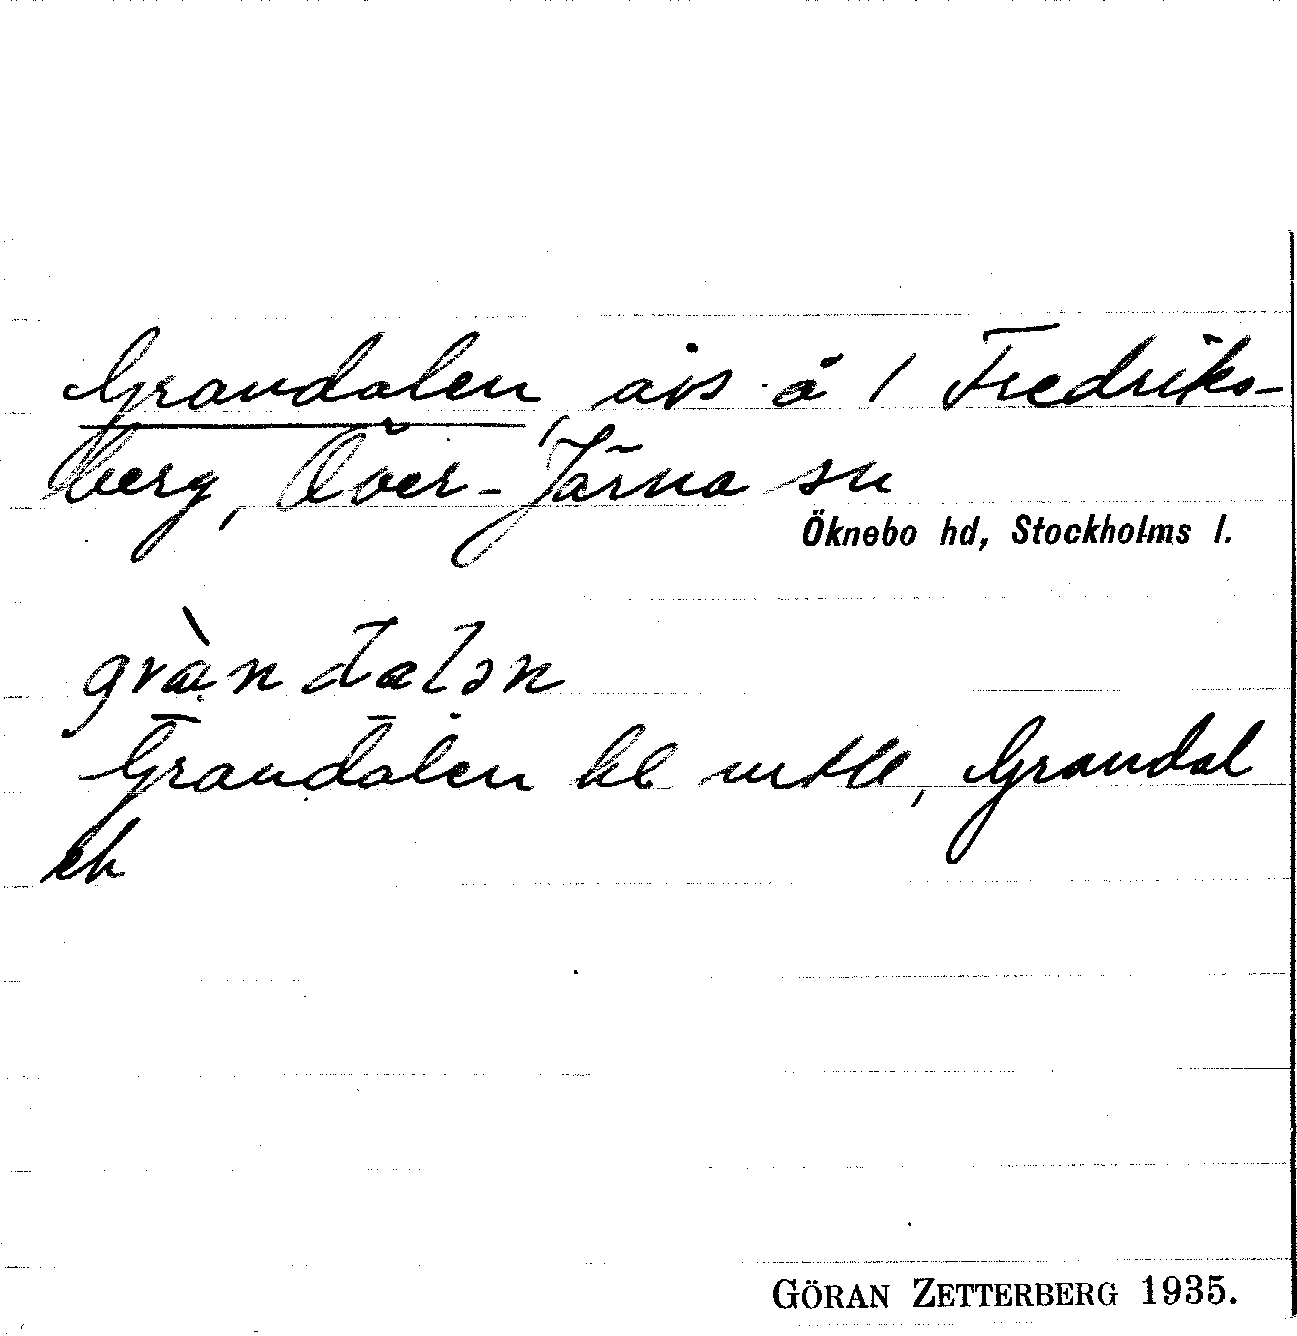 Grandalen, avs å 1 Fredriks-
berg, Över-Järna sn
Öknebo hd, Stockholms l.
gràndalən
Grandalen kl mtll, Grandal
ek
GÖRAN ZETTERBERG 1935.